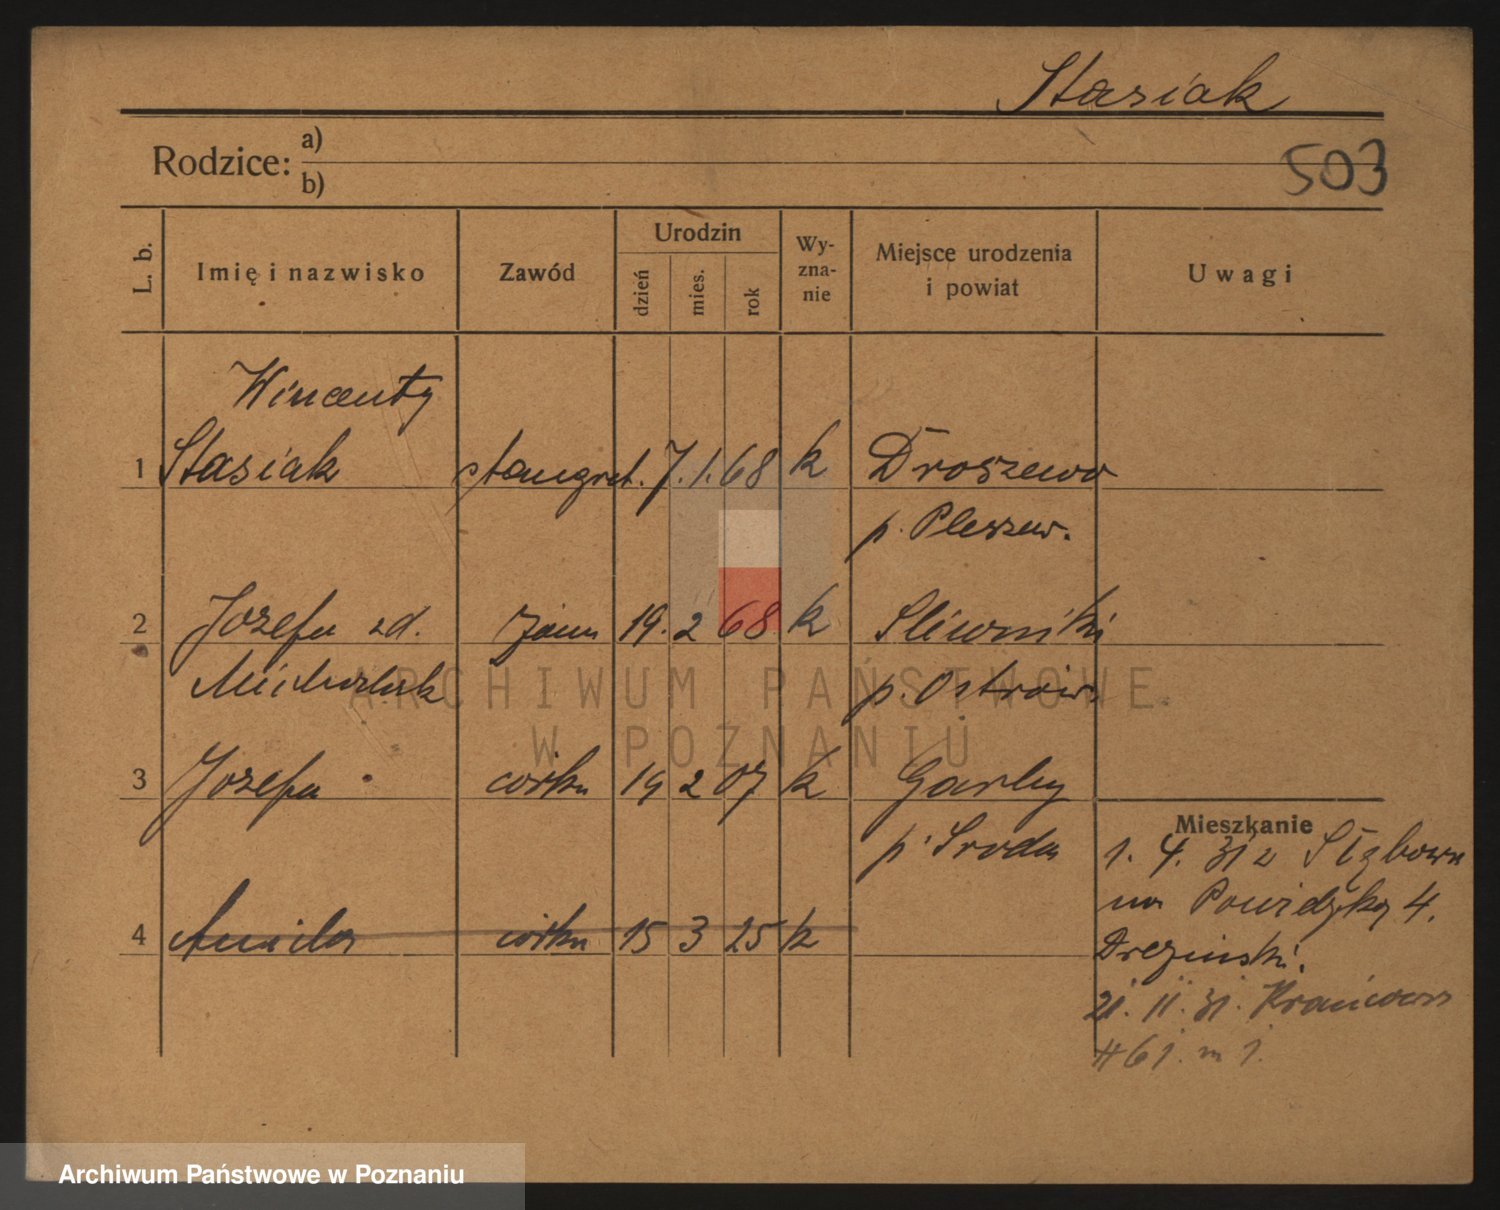 Stasiak
Rodzice: a)
b)
503
L. b. Imię i nazwisko Zawód Urodzin dzień mies. rok Wy-zna-nie Miejsce urodzenia i powiat Uwagi
Wincenty
1 Stasiak stangret. 7. 1. 68 k Droszewo
p. Pleszew.
2 Józefa zd. żona 19. 2 68 k Sliwniki
Michalak p. Ostrów
ARCHIWUM PAŃSTWOWE
W POZNANIU
3 Józefa córka 19 2 07 k Garby
p. Sroda
Mieszkanie
1. 4. 31 z
na Powidzką 4.
4 Aniela córka 15 3 25 k
21. 11. 31.
61. m 1.
Archiwum Państwowe w Poznaniu